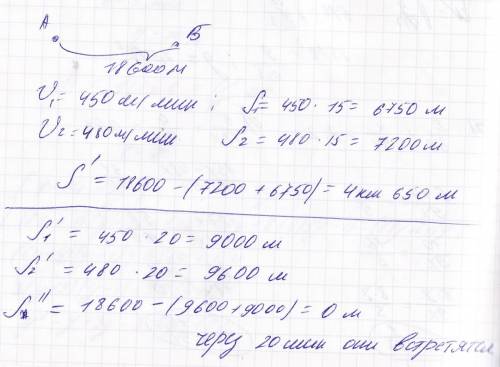 А Б
18600м
V₁= 450 м/мин ; S₁= 450 · 15= 6750 м
V₂= 480м/мин S₂ = 480 · 15 = 7200м
S' = 18600 - (7200 + 6750) = 4км 650 м
S₁' = 450 · 20 = 9000 м
S₂' = 480 · 20 = 9600 м
S'' = 18600 - (9600+9000) = 0 м
через 20 мин они встретятся